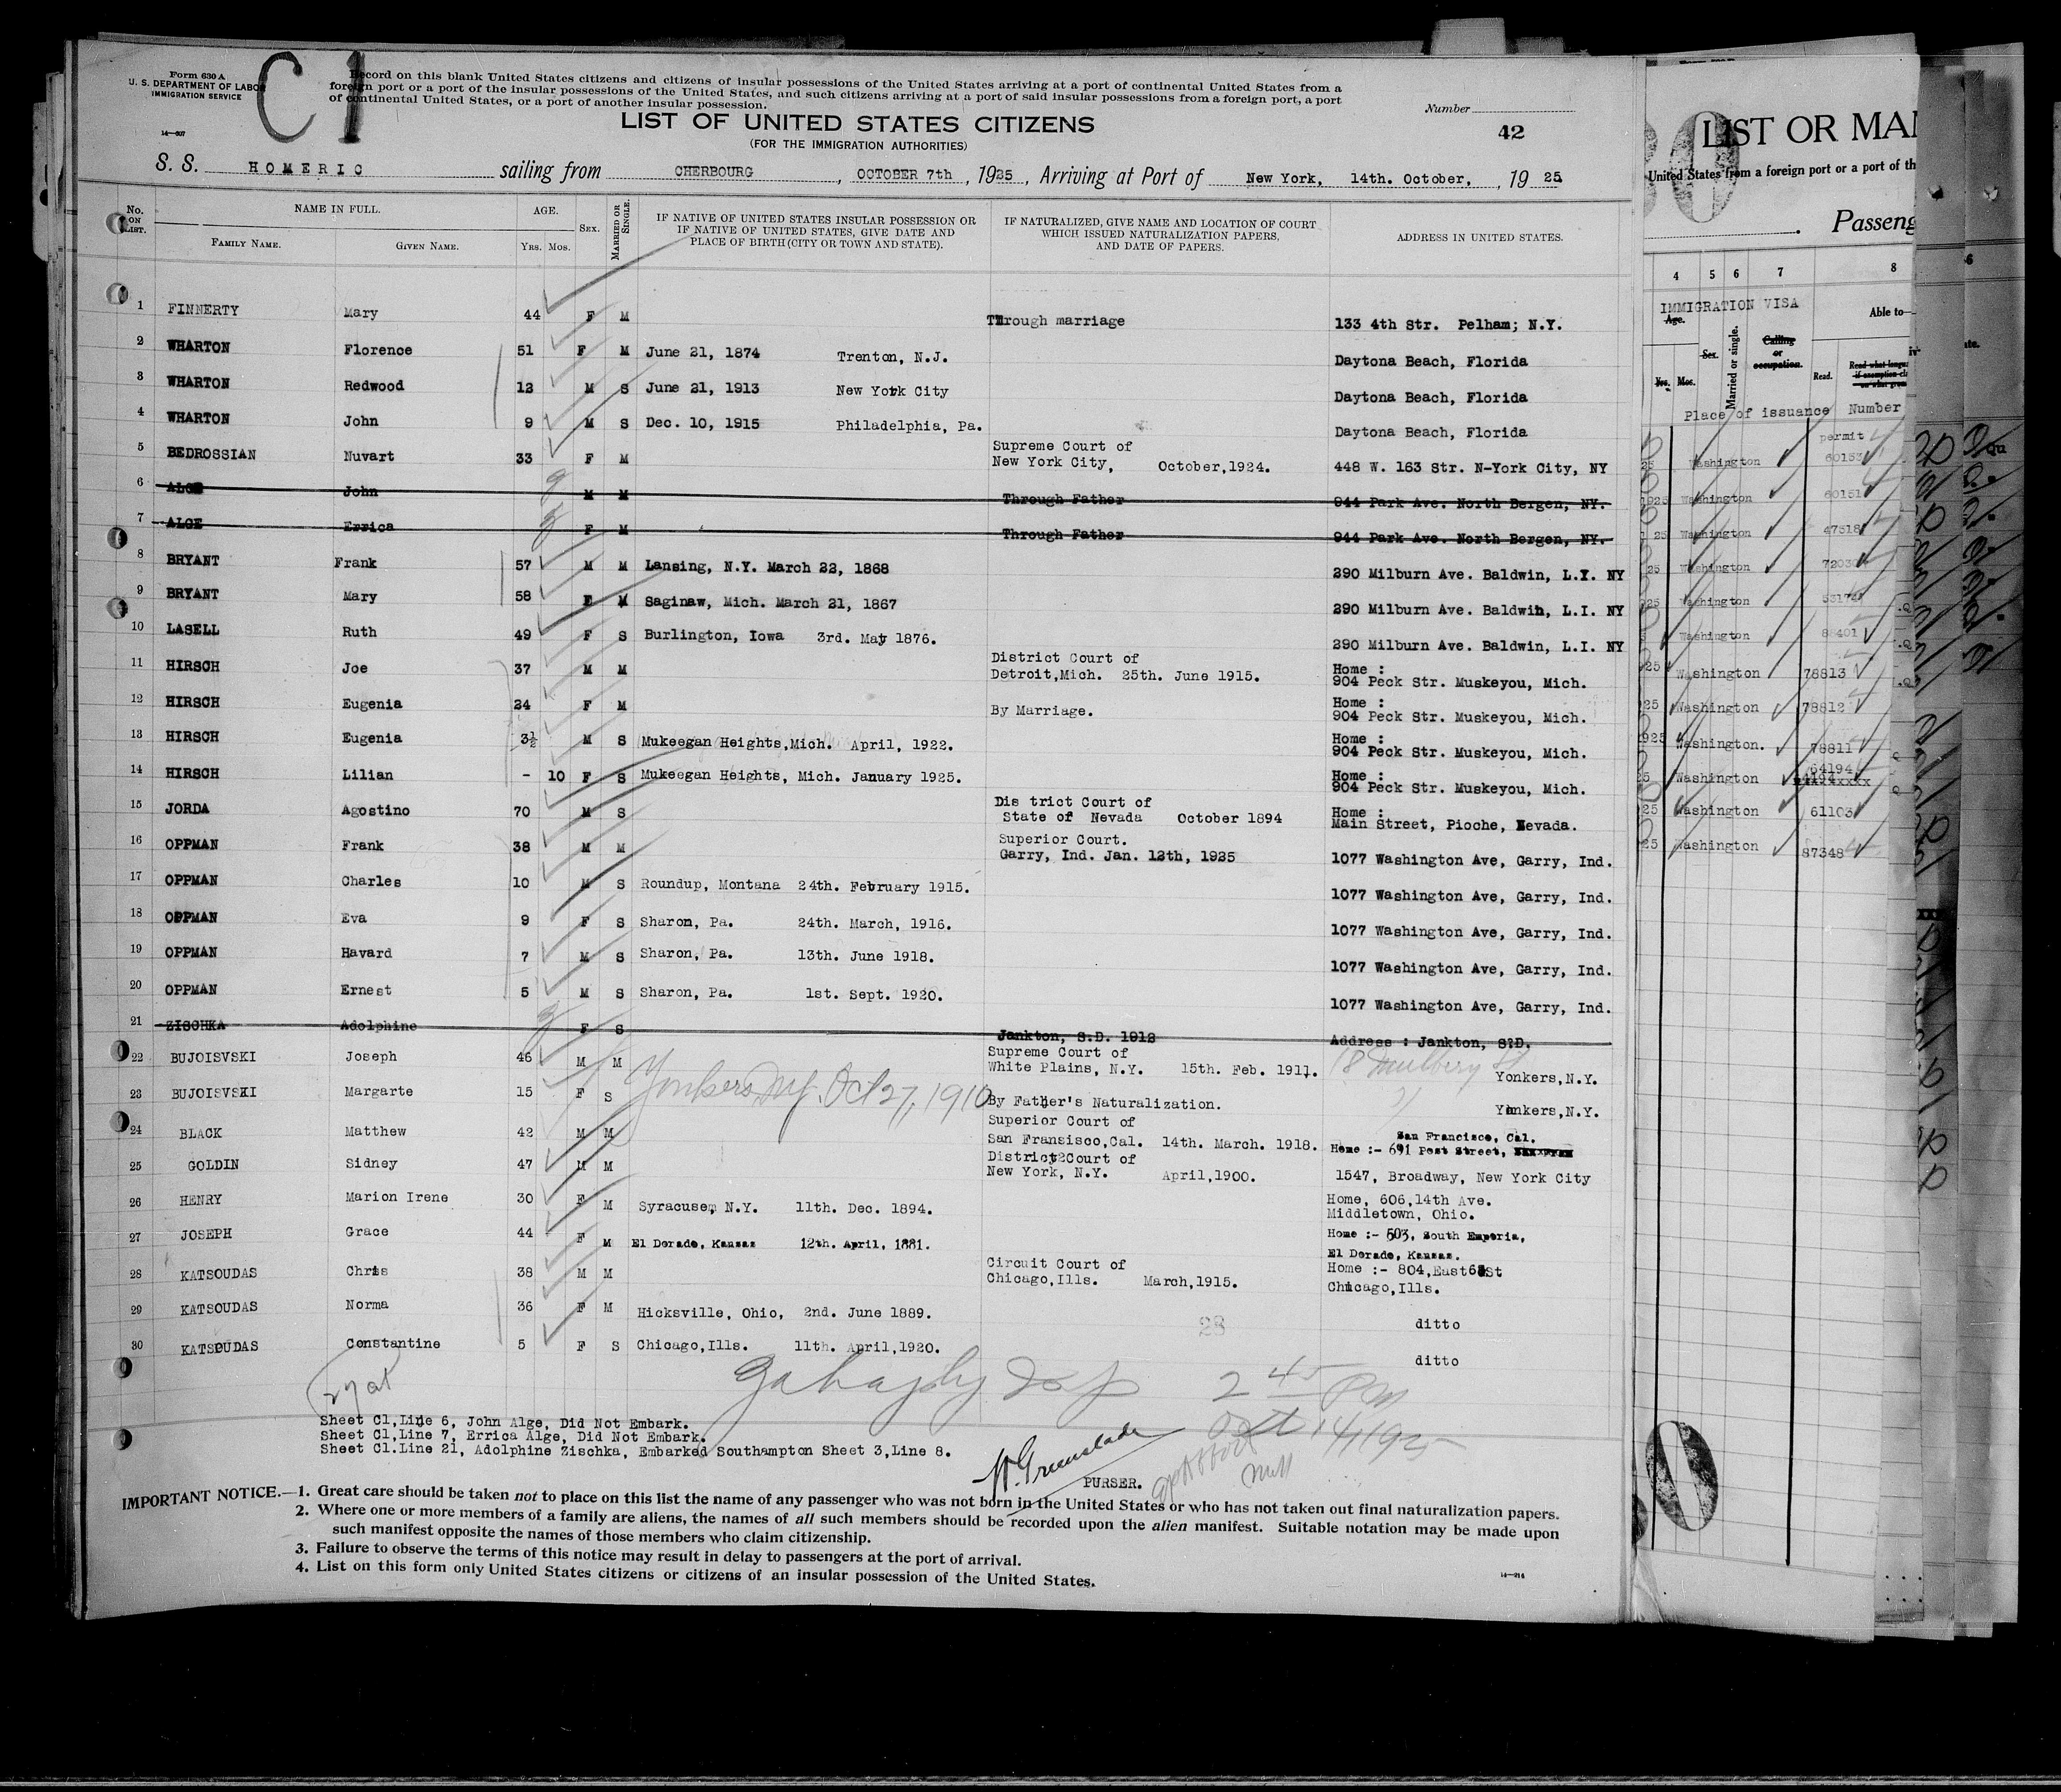 Form 630 A
U. S. DEPARTMENT OF LABOR
IMMIGRATION SERVICE
14—607
C1
Record on this blank United States citizens and citizens of insular possessions of the United States arriving at a port of continental United States from a
foreign port or a port of the insular possessions of the United States, and such citizens arriving at a port of said insular possessions from a foreign port, a port
of continental United States, or a port of another insular possession.
Number
LIST OF UNITED STATES CITIZENS
42
(FOR THE IMMIGRATION AUTHORITIES)
S. S. HOMERIC sailing from CHERBOURG, OCTOBER 7th, 1925, Arriving at Port of New York, 14th. October, 1925
No. ON LIST. NAME IN FULL. AGE. SEX. MARRIED OR SINGLE. IF NATIVE OF UNITED STATES INSULAR POSSESSION OR IF NATIVE OF UNITED STATES, GIVE DATE AND PLACE OF BIRTH (CITY OR TOWN AND STATE). IF NATURALIZED, GIVE NAME AND LOCATION OF COURT WHICH ISSUED NATURALIZATION PAPERS, AND DATE OF PAPERS. ADDRESS IN UNITED STATES.
FAMILY NAME. GIVEN NAME. YRS. MOS.
1 FINNERTY Mary 44 F M Through marriage 133 4th Str. Pelham; N.Y.
2 WHARTON Florence 51 F M June 21, 1874 Trenton, N.J. Daytona Beach, Florida
3 WHARTON Redwood 12 M S June 21, 1913 New York City Daytona Beach, Florida
4 WHARTON John 9 M S Dec. 10, 1915 Philadelphia, Pa. Daytona Beach, Florida
5 BEDROSSIAN Nuvart 33 F M Supreme Court of New York City, October,1924. 448 W. 163 Str. N-York City, NY
6 ALGE John M M Through Father 944 Park Ave. North Bergen, NY.
7 ALGE Errica F M Through Father 944 Park Ave. North Bergen, NY.
8 BRYANT Frank 57 M M Lansing, N.Y. March 22, 1868 290 Milburn Ave. Baldwin, L.I. NY
9 BRYANT Mary 58 F M Saginaw, Mich. March 21, 1867 290 Milburn Ave. Baldwin, L.I. NY
10 LASELL Ruth 49 F S Burlington, Iowa 3rd. May 1876. 290 Milburn Ave. Baldwin, L.I. NY
11 HIRSCH Joe 37 M M District Court of Detroit,Mich. 25th. June 1915. Home : 904 Peck Str. Muskeyou, Mich.
12 HIRSCH Eugenia 24 F M By Marriage. Home : 904 Peck Str. Muskeyou, Mich.
13 HIRSCH Eugenia 3½ M S Mukeegan Heights,Mich. April, 1922. Home : 904 Peck Str. Muskeyou, Mich.
14 HIRSCH Lilian - 10 F S Mukeegan Heights, Mich. January 1925. Home : 904 Peck Str. Muskeyou, Mich.
15 JORDA Agostino 70 M S Dis trict Court of State of Nevada October 1894 Home : Main Street, Pioche, Nevada.
16 OPPMAN Frank 38 M M Superior Court. Garry, Ind. Jan. 12th, 1925 1077 Washington Ave, Garry, Ind.
17 OPPMAN Charles 10 M S Roundup, Montana 24th. February 1915. 1077 Washington Ave, Garry, Ind.
18 OPPMAN Eva 9 F S Sharon, Pa. 24th. March, 1916. 1077 Washington Ave, Garry, Ind.
19 OPPMAN Havard 7 M S Sharon, Pa. 13th. June 1918. 1077 Washington Ave, Garry, Ind.
20 OPPMAN Ernest 5 M S Sharon, Pa. 1st. Sept. 1920. 1077 Washington Ave, Garry, Ind.
21 ZISCHKA Adolphine F S Jankton, S.D. 1912 Address : Jankton, S.D.
22 BUJOISVSKI Joseph 46 M M Supreme Court of White Plains, N.Y. 15th. Feb. 1911. 18 Mulbery St Yonkers,N.Y.
23 BUJOISVSKI Margarte 15 F S Yonkers, N.Y. Oct 27, 1910 By Father's Naturalization. Yonkers,N.Y.
24 BLACK Matthew 42 M M Superior Court of San Fransisco,Cal. 14th. March. 1918. San Francisco, Cal. Home :- 691 Post Street,
25 GOLDIN Sidney 47 M M District Court of New York, N.Y. April,1900. 1547, Broadway, New York City
26 HENRY Marion Irene 30 F M Syracuse, N.Y. 11th. Dec. 1894. Home, 606,14th Ave. Middletown, Ohio.
27 JOSEPH Grace 44 F M El Dorado, Kansas 12th. April, 1881. Home :- 503, South Emporia, El Dorado, Kansas.
28 KATSOUDAS Chris 38 M M Circuit Court of Chicago,Ills. March,1915. Home :- 804,East 6 St Chicago,Ills.
29 KATSOUDAS Norma 36 F M Hicksville, Ohio, 2nd. June 1889. ditto
30 KATSOUDAS Constantine 5 F S Chicago,Ills. 11th. April,1920. ditto
28
2 45 PM
Oct 14/1925
Sheet C1,Line 6, John Alge, Did Not Embark.
Sheet C1,Line 7, Errica Alge, Did Not Embark.
Sheet C1.Line 21, Adolphine Zischka, Embarked Southampton Sheet 3,Line 8.
H. Greenslade
PURSER.
IMPORTANT NOTICE.—1. Great care should be taken not to place on this list the name of any passenger who was not born in the United States or who has not taken out final naturalization papers.
2. Where one or more members of a family are aliens, the names of all such members should be recorded upon the alien manifest. Suitable notation may be made upon
such manifest opposite the names of those members who claim citizenship.
3. Failure to observe the terms of this notice may result in delay to passengers at the port of arrival.
4. List on this form only United States citizens or citizens of an insular possession of the United States.
14—214
LIST OR MAN
United States from a foreign port or a port of th
Passeng
4 5 6 7 8
IMMIGRATION VISA
Age. Sex. Married or single. Calling or occupation. Able to—
Yrs. Mos. Read.
Place of issuance Number
permit
25 Washington 60153
1925 Washington 60151
25 Washington 47518
25 Washington 72030
25 Washington
Washington 88401
25 Washington 78813
25 Washington 78812
1925 Washington. 78811
64194
25 Washington
25 Washington 61103
25 Washington 87348